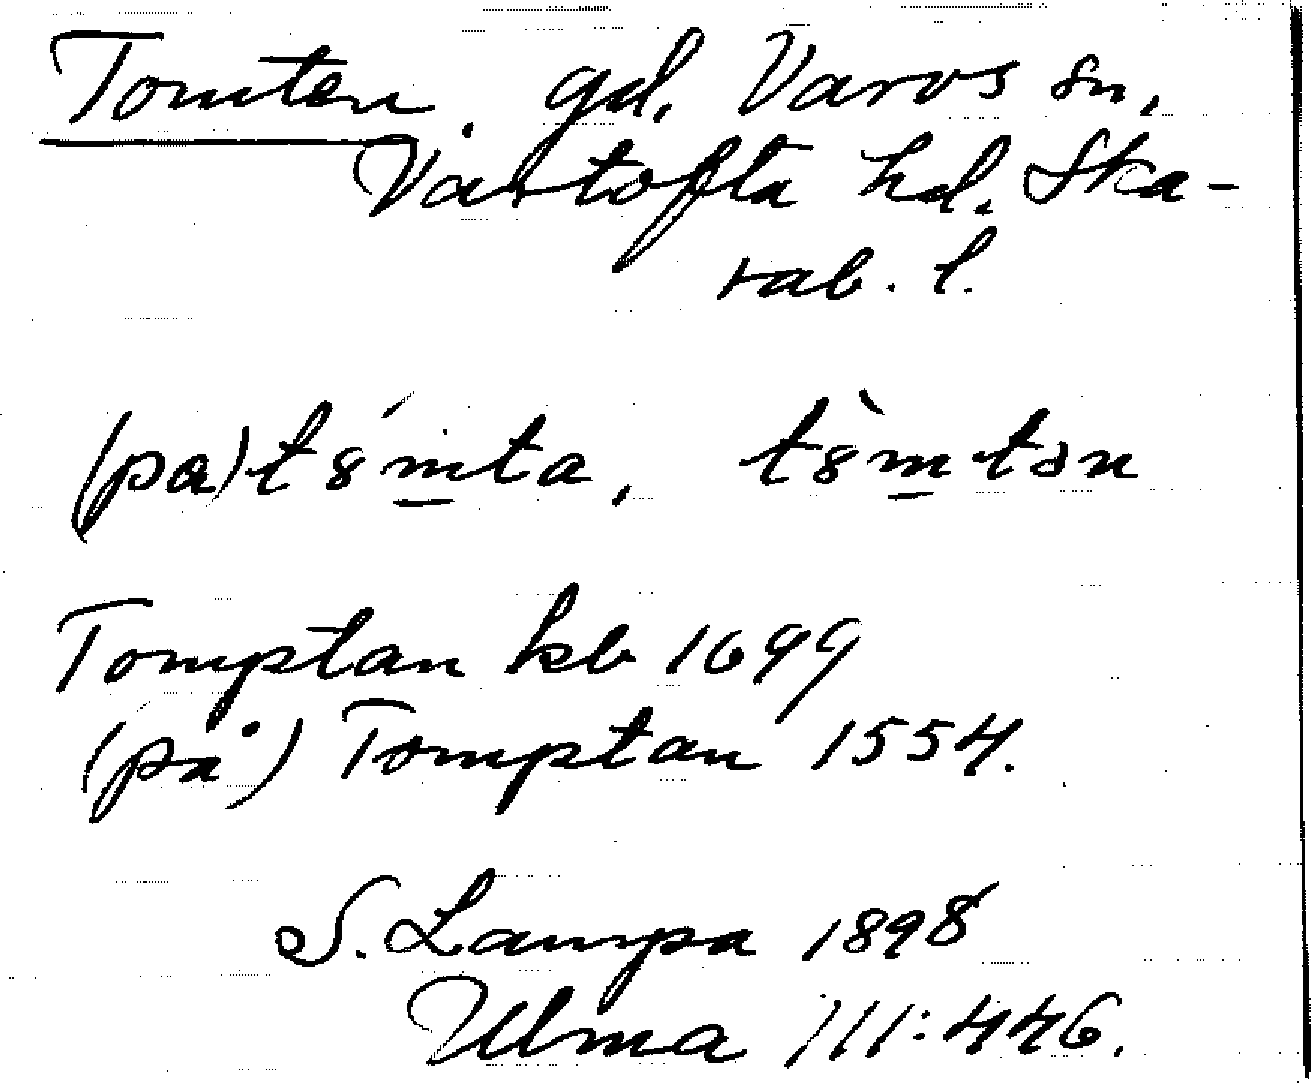 Tomten. gd. Varvs sn,
Vartofta hd. Ska-
rab. l.
(pa) t8́m̲ta, t8̀m̲tən
Tomptan kb 1699
(på) Tomptan 1554.
S. Lampa 1898
Ulma 111:446.